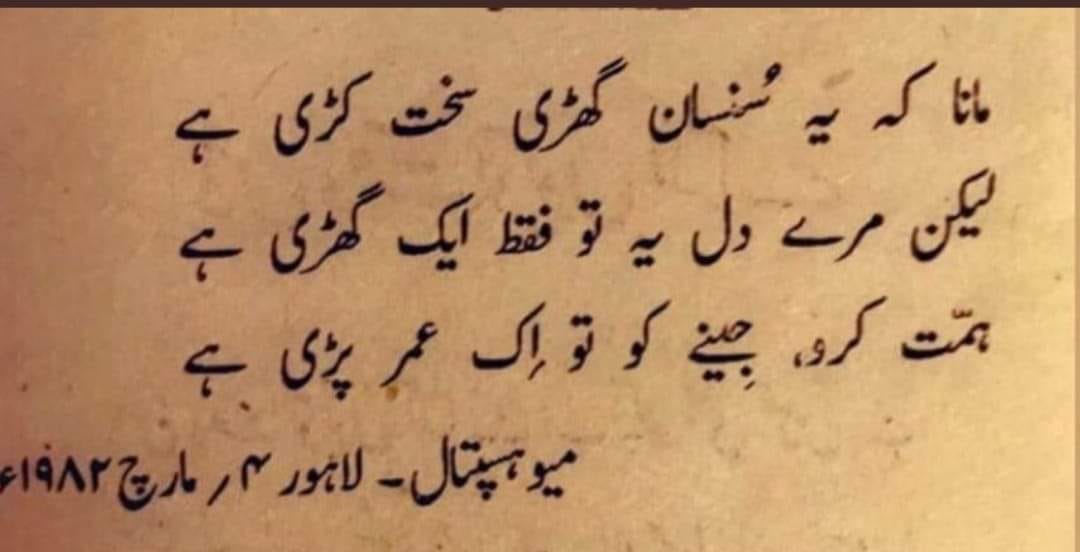 مانا کہ یہ سُنسان گھڑی سخت کڑی ہے
لیکن مرے دل یہ تو فقط ایک گھڑی ہے
ہمّت کرو، جینے کو تو اِک عمر پڑی ہے
میو ہسپتال ۔ لاہور ۴؍ مارچ ۱۹۸۲ء